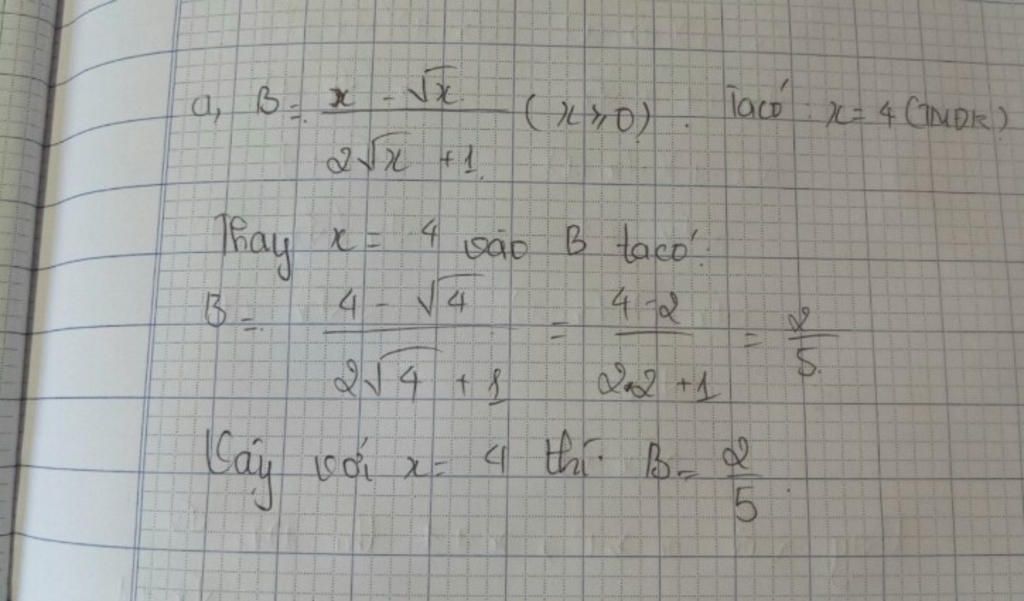 a, B = x - √x / 2√x + 1 (x ≥ 0). Ta có: x = 4 (TMĐK)
Thay x = 4 vào B ta có:
B = 4 - √4 / 2√4 + 1 = 4 - 2 / 2.2 + 1 = 2/5
Vậy với x = 4 thì B = 2/5.